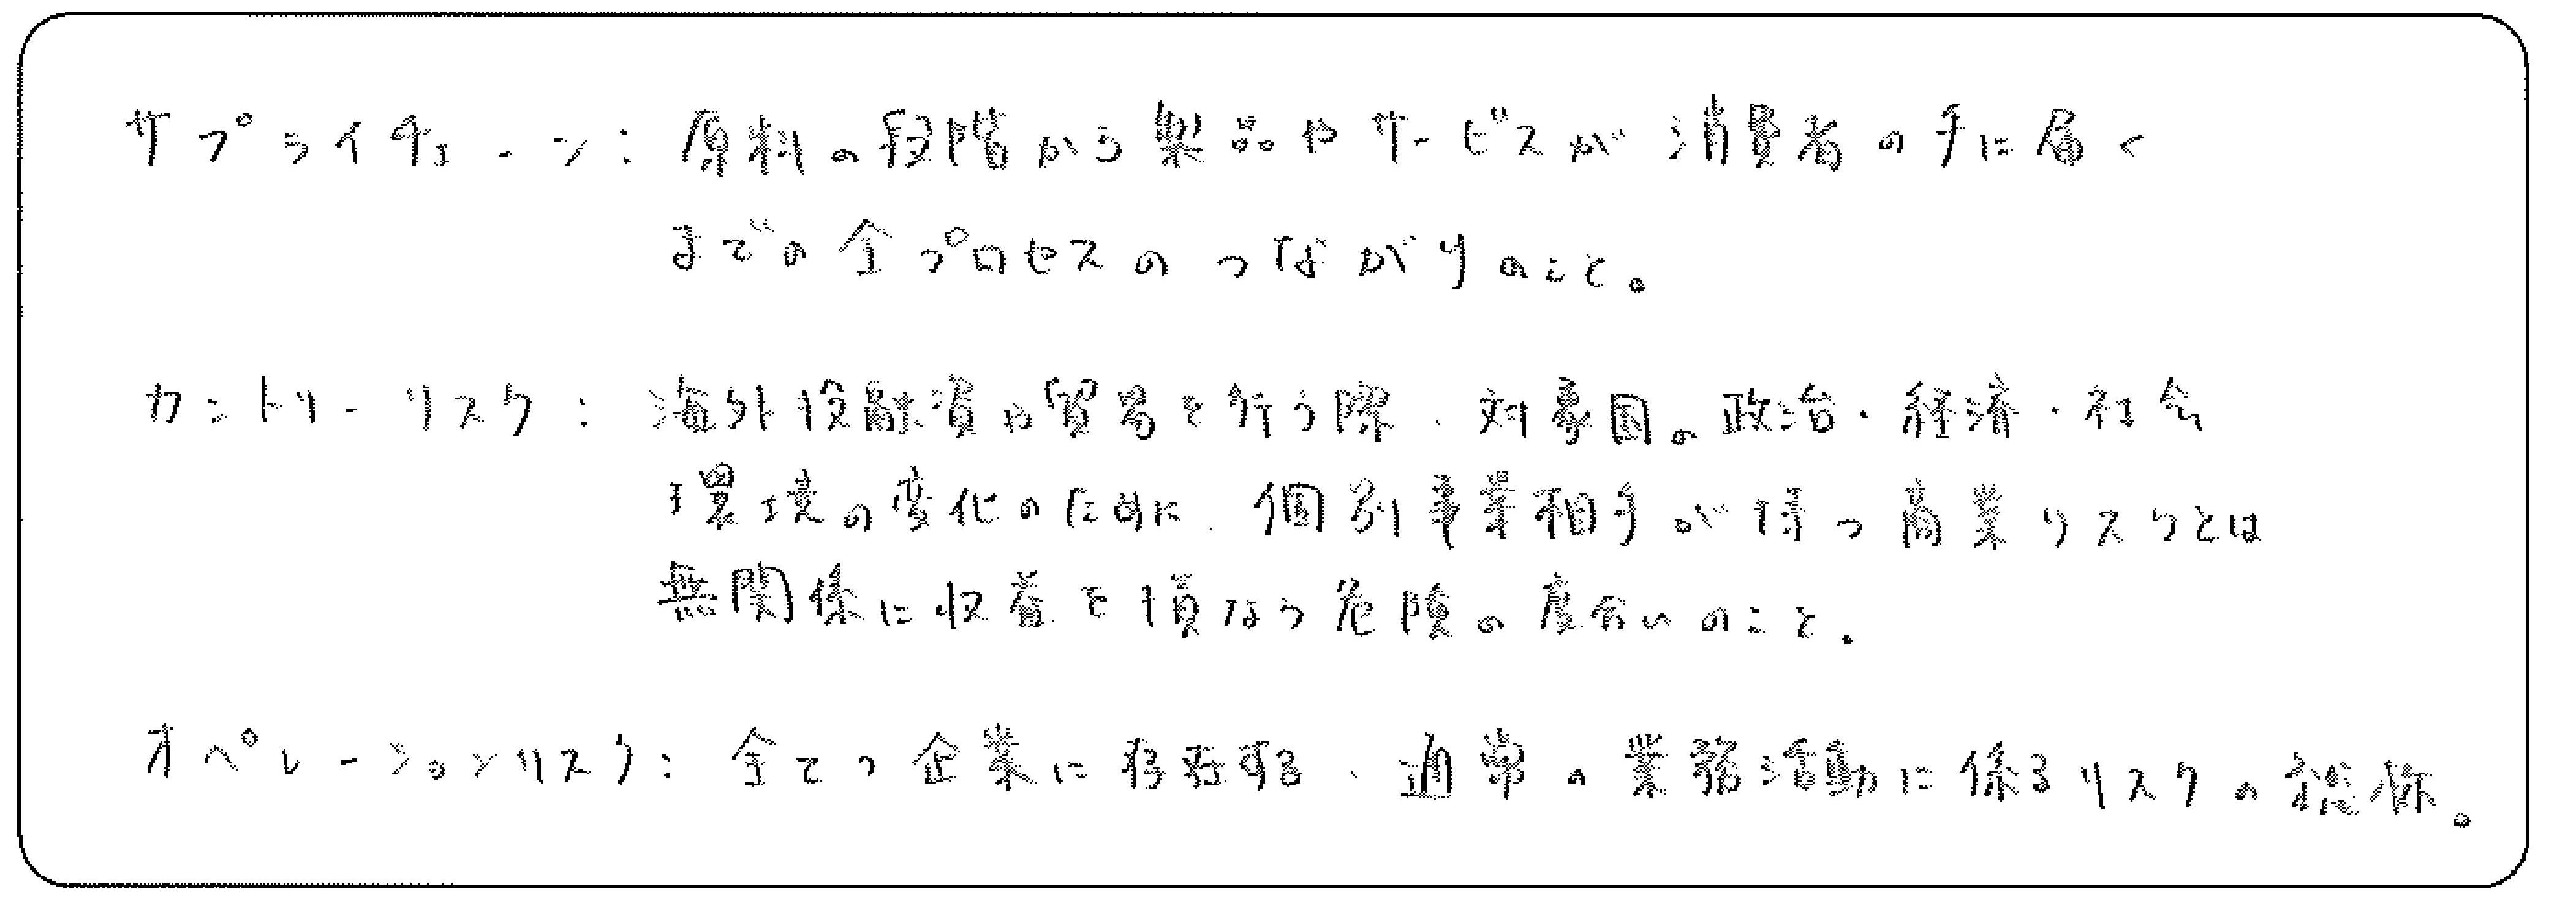 サプライチェーン：原料の段階から製品やサービスが消費者の手に届く
までの全プロセスのつながりのこと。
カントリーリスク：海外投融資や貿易を行う際、対象国の政治・経済・社会
環境の変化のために、個別事業相手が持つ商業リスクとは
無関係に収益を損なう危険の度合いのこと。
オペレーションリスク：全ての企業に存在する、通常の業務活動に係るリスクの総称。